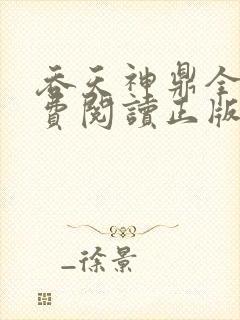 吞天神鼎全
費閱讀正版
_徐景